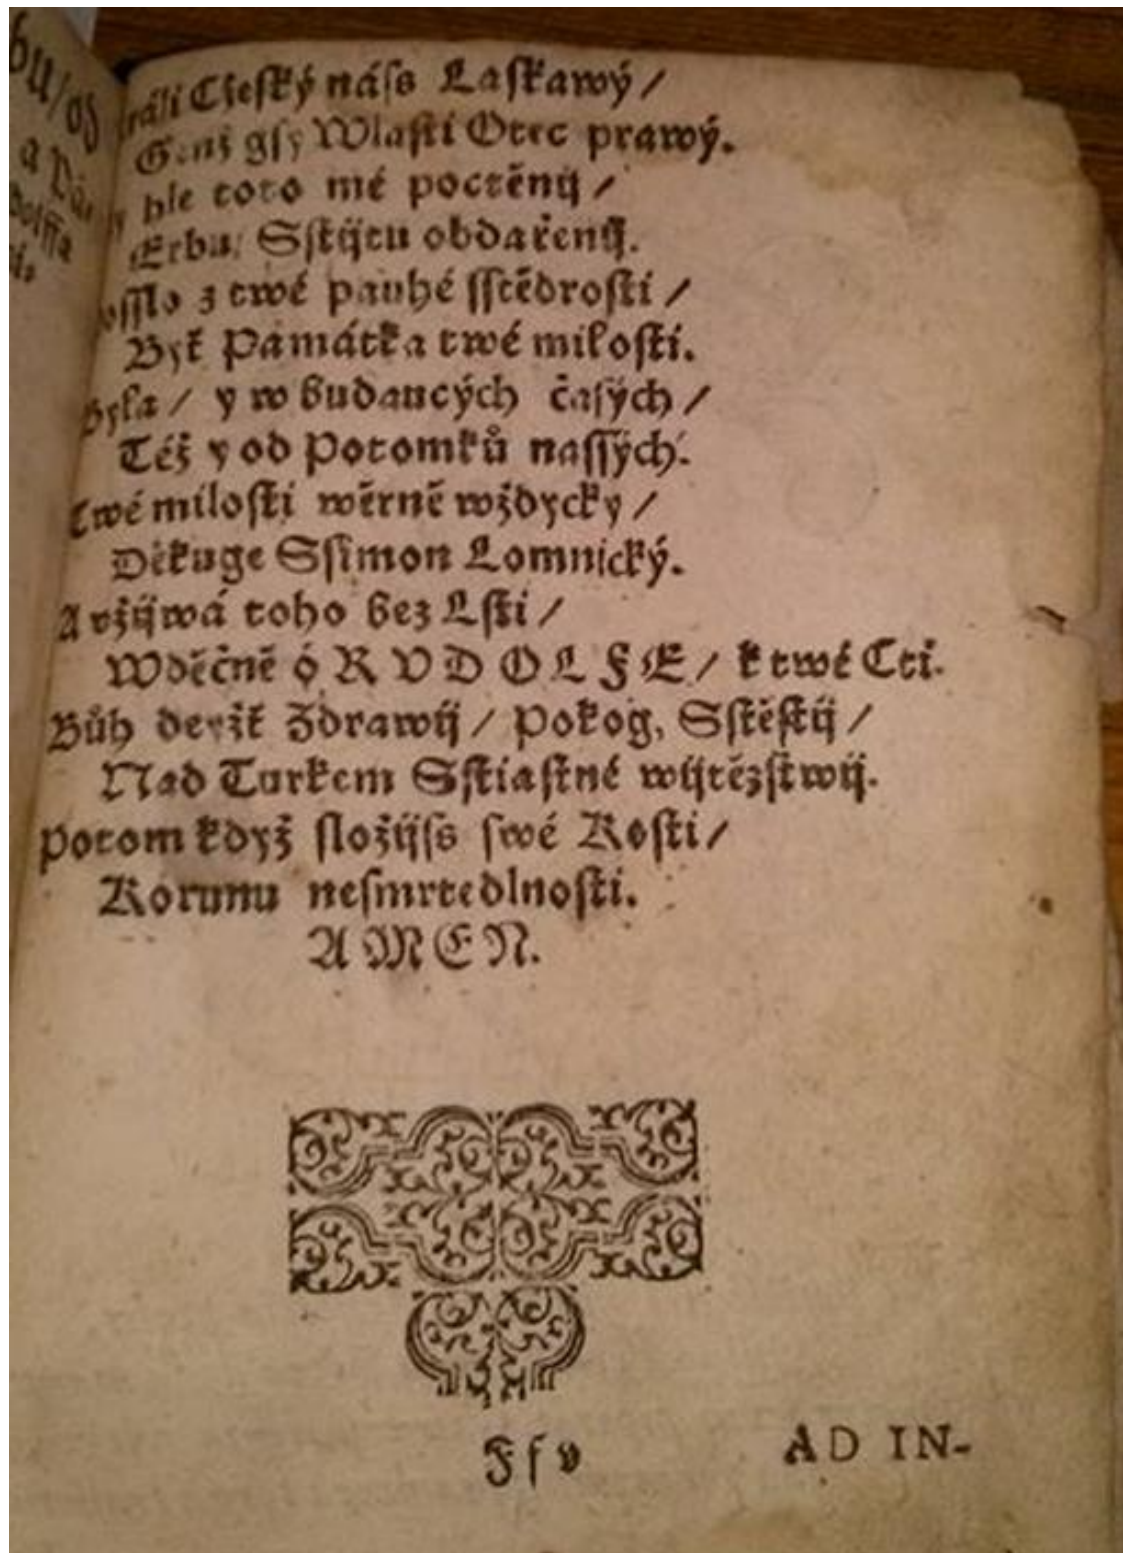 bu/ gž
a Pá
ráli Cžeský náss Laskawý /
Genž gsy Wlasti Otec prawý.
hle toto mé poctěnij /
Erbu, Sstijtu obdařenij.
osslo z twé pauhé sstědrosti /
Byť Památka twé milosti.
Byla / y w budaucých časých /
Též y od Potomků nassých.
Twé milosti wěrně wždycky /
Děkuge Ssimon Lomnický.
A vžijwá toho bez Lsti /
Wděčně ó RVDOLFE / k twé Cti.
Bůh deyžť Zdrawij / Pokog, Sstěstij /
Nad Turkem Sstiastné wijtězstwij.
Potom když složijss swé Kosti /
Korunu nesmrtedlnosti.
AMEN.
Ff v
AD IN-